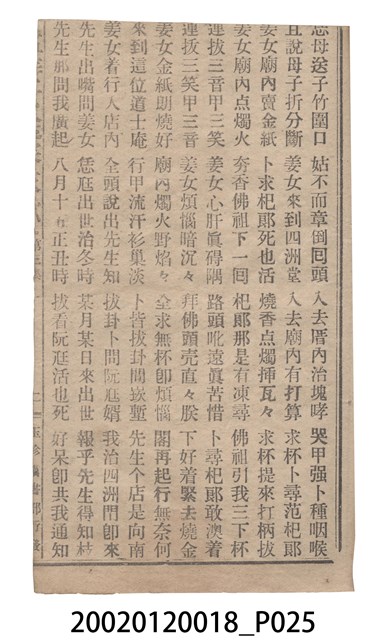 忘母送子竹圍口 姑不而章倒囘頭 入去厝內治塊哮 哭甲强卜種咽喉
且說母子折分斷 姜女來到四洲堂 入去廟內有打算 求杯卜尋范杞郞
姜女廟內賣金紙 卜求杞郞死也活 燒香點燭揷瓦々 求杯提來打柄拔
姜女廟內點燭火 夯香佛祖下一囘 杞郞那是有凍尋 佛祖引我三下杯
連拔三音甲三笑 姜女心肝眞碍隅 路頭吪遠眞苦惜 卜尋杞郞敢澳着
連拔三笑甲三音 姜女煩惱暗沉々 拜佛頭壳直々朕 下好着緊去燒金
姜女金紙朗燒好 廟內燭火野焰々 全求無杯卽煩惱 閣再起行無奈何
來到這位道士庵 行甲流汗衫巢淡 卜皆拔卦問嵌塹 先生个店是向南
姜女着行人店內 全頭說出先生知 拔卦卜問阮尪婿 我治四洲門卽來
先生出嘴問姜女 恁尪出世治冬時 某月某日來出世 報乎先生得知枝
先生那問我廣起 八月十五正丑時 拔看阮尪活也死 好呆卽共我通知
20020120018_P025